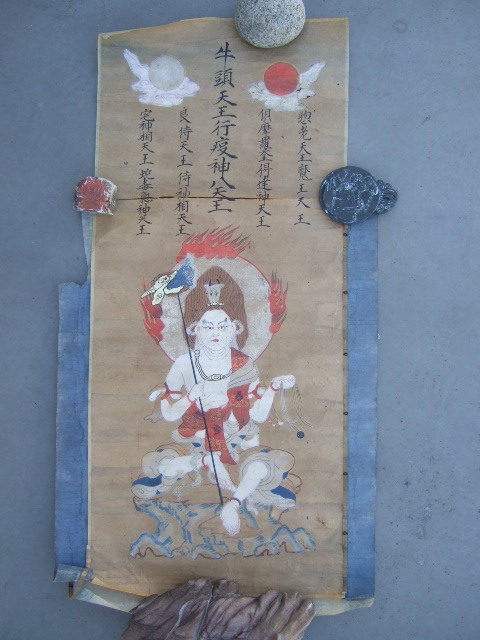 惣光天王魔王天王
倶摩羅天王得達神天王
牛頭天王行疫神八天王
良侍天王侍神相天王
宅神相天王蛇毒気神天王